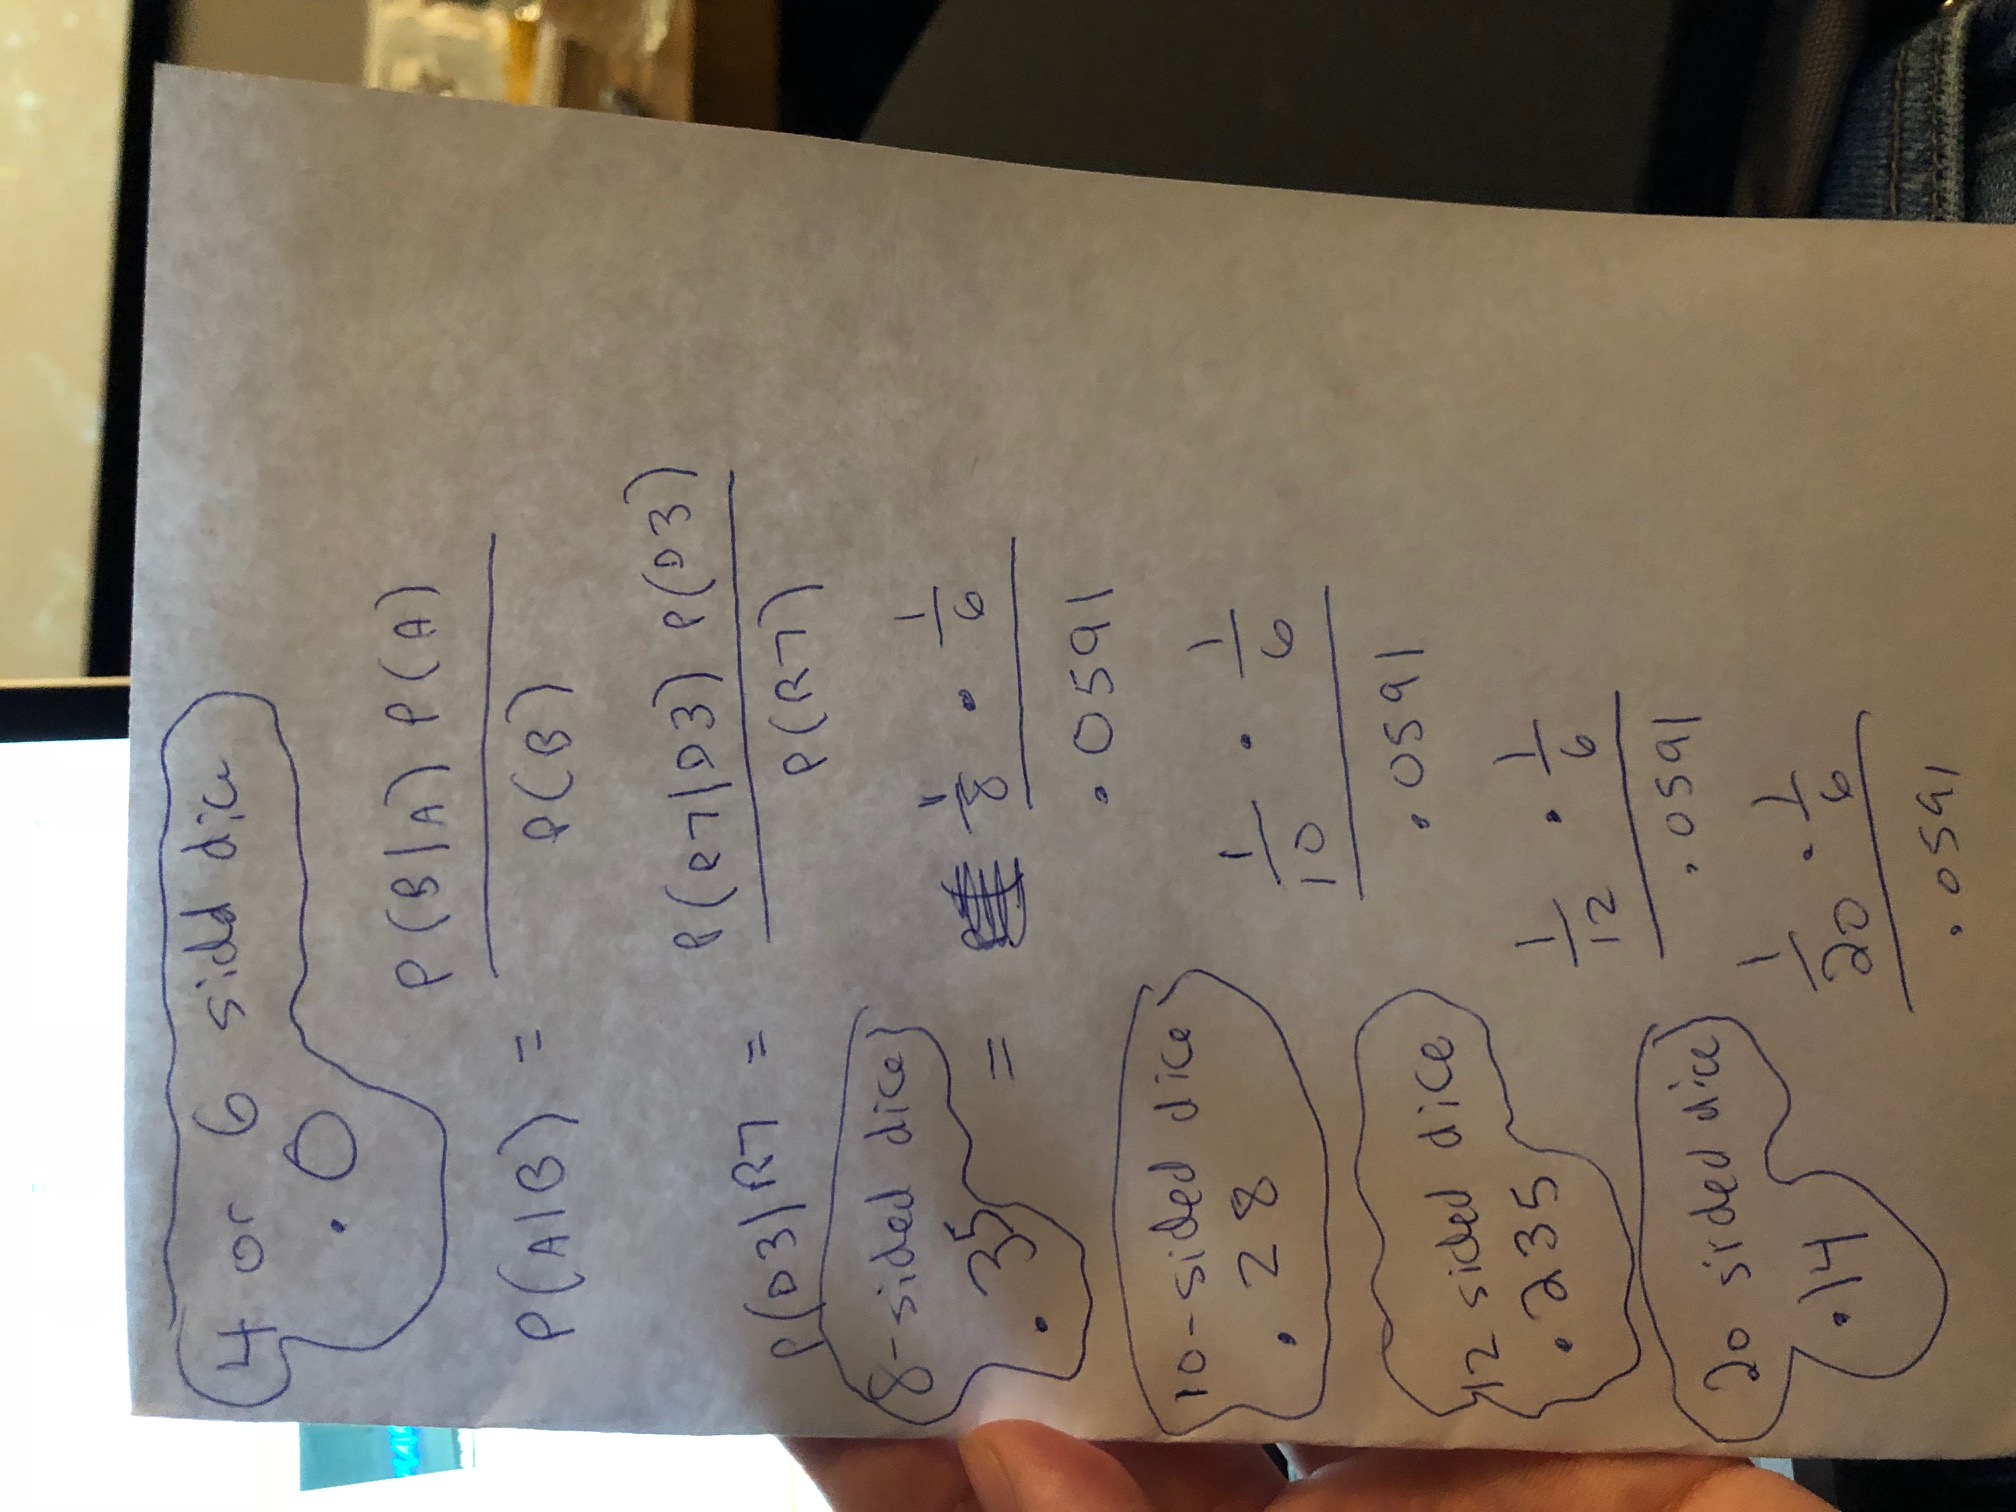 4 or 6 sidd dice
.0
P(B|A) P(A)
P(A|B) =
P(B)
P(R7|D3) P(D3)
P(D3|R7 =
P(R7)
8-sided dice
.35 = 1/8 · 1/6
.0591
10-sided dice
.28
1/10 · 1/6
.0591
12 sided dice
.235
1/12 · 1/6
.0591
20 sided dice
.14
1/20 · 1/6
.0591